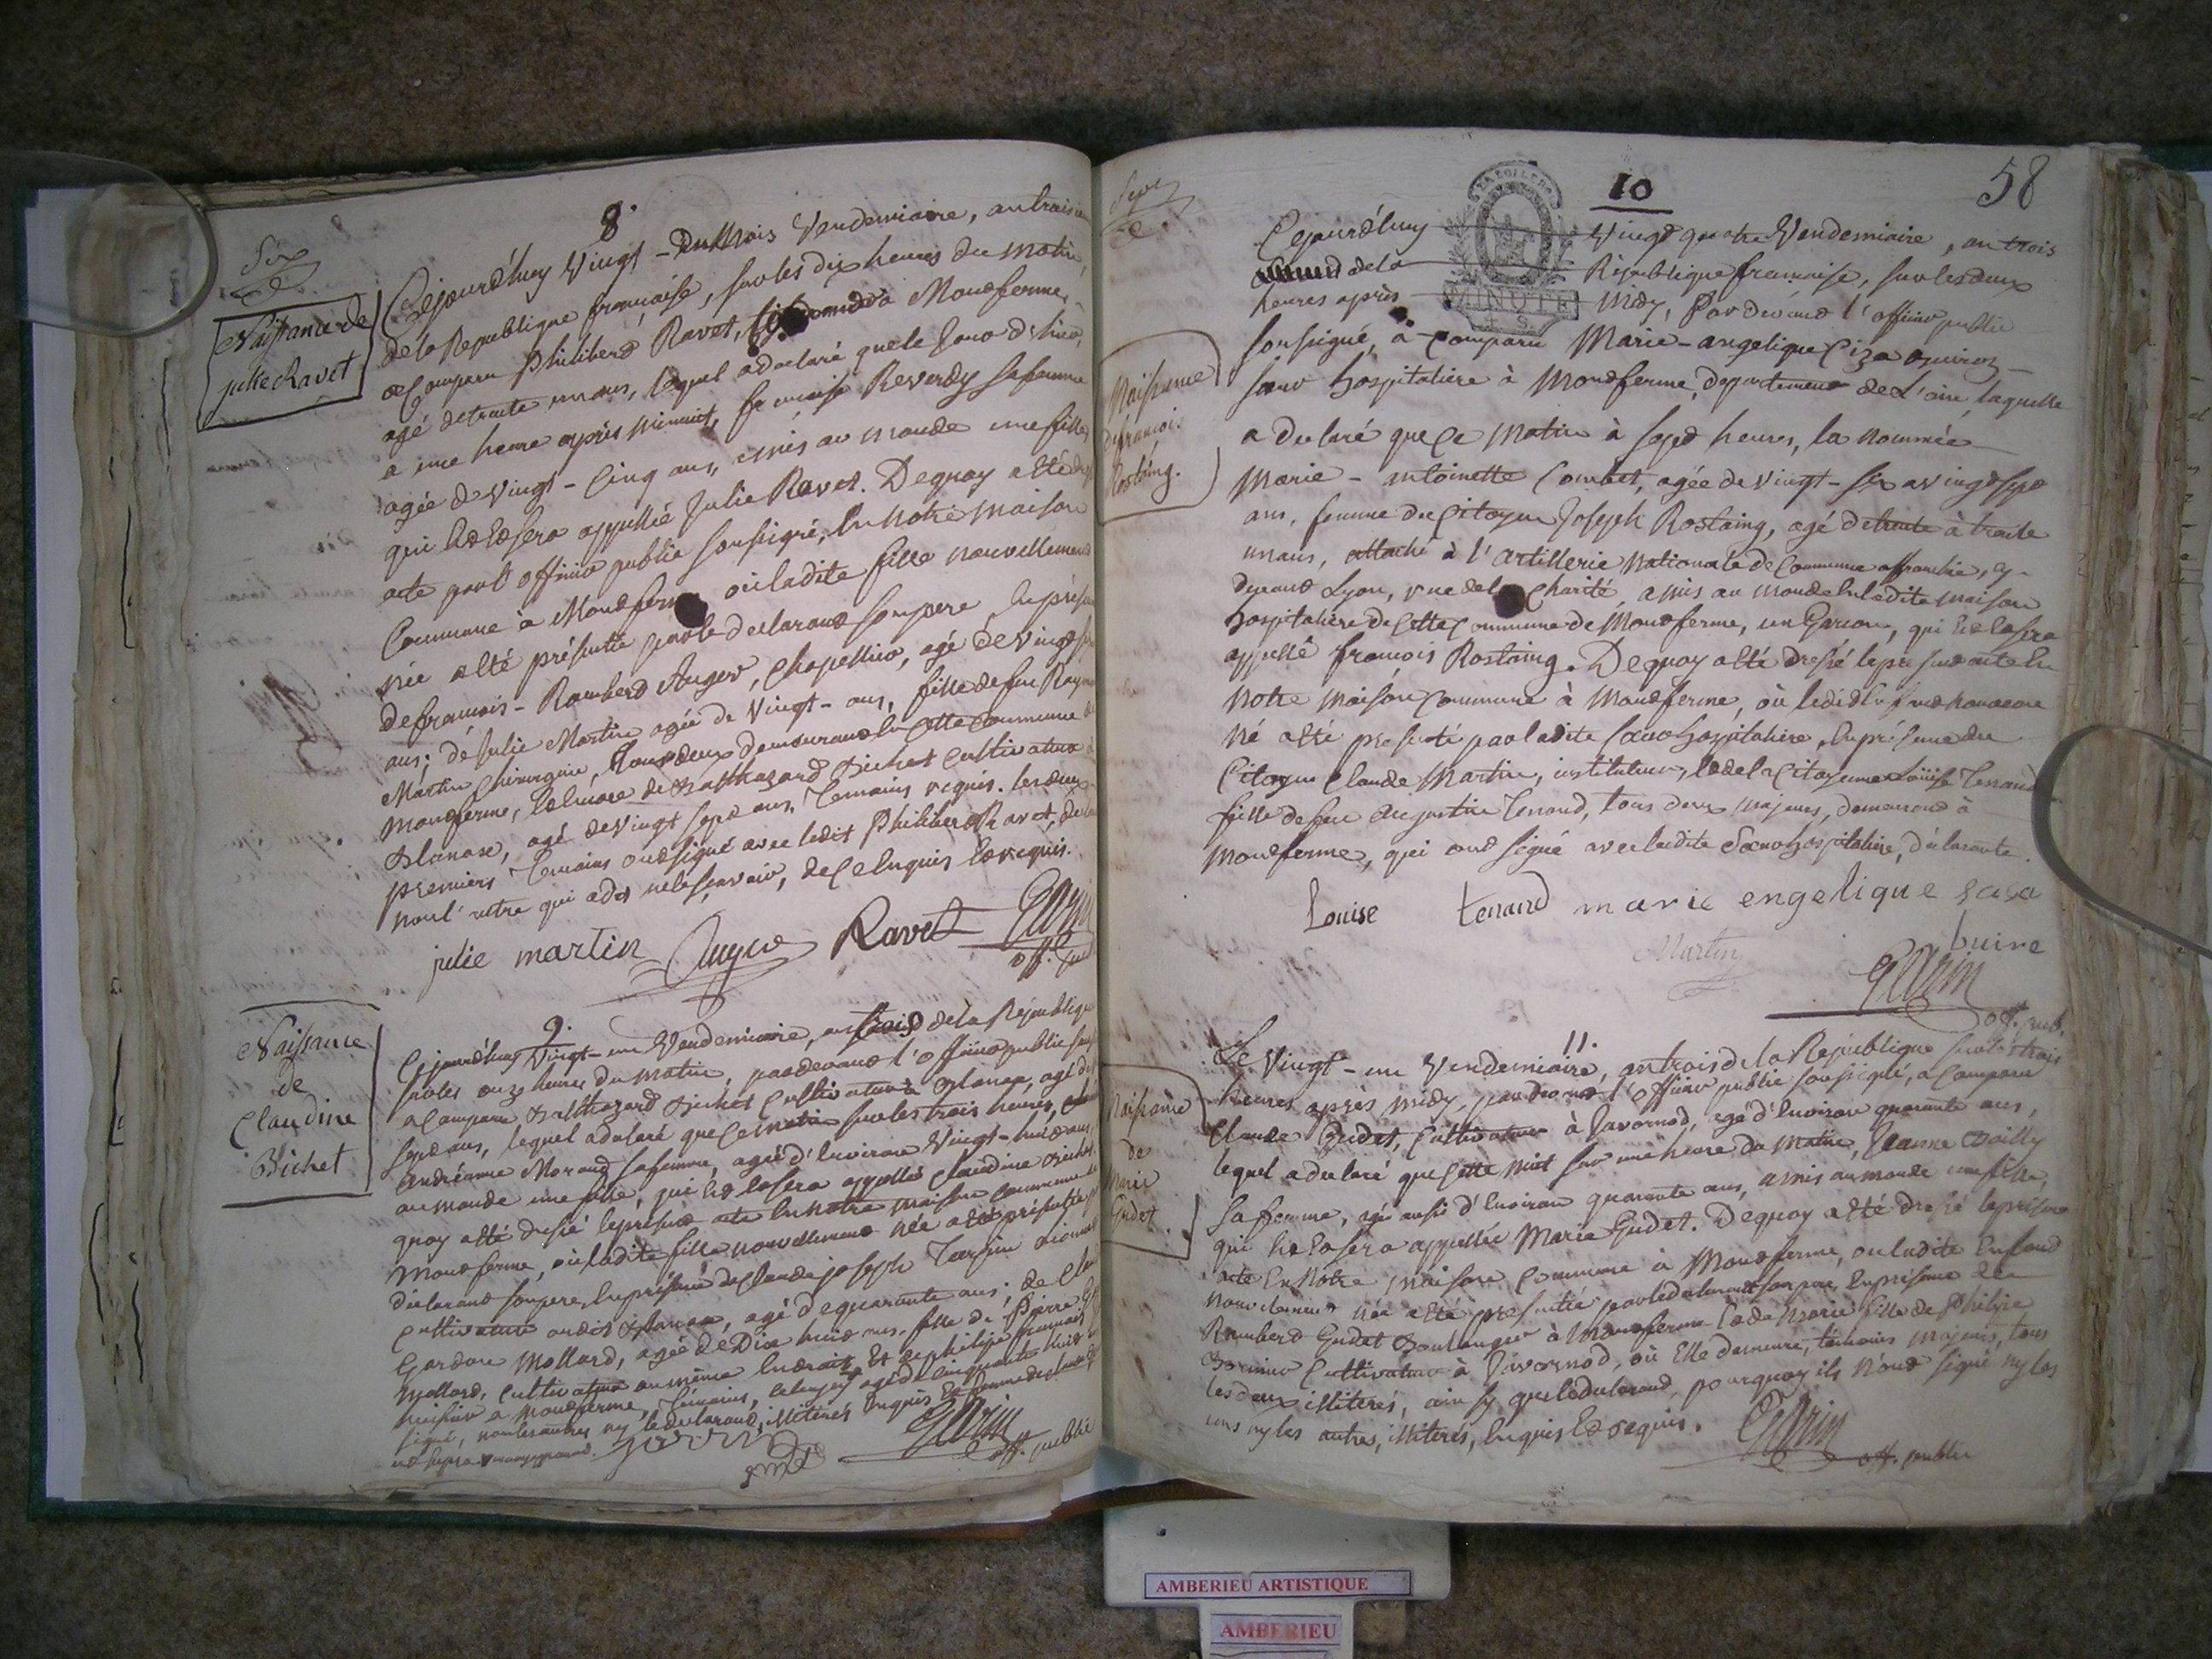 Six
Naissance de
julie Ravet
8.
Cejourd'huy Vingt - Vendemiaire, an troisie
de la Republique française, sur les dix heures du matin,
a Comparu Philiberd Ravet, a Montferme,
agé de trente un ans, lequel a declaré que le jour d'hier,
a une heure après minuit, francoise Reverdy sa femme
agée de Vingt - Cinq ans, a mis au monde une fille
qui est et sera appellée Julie Ravet. De quoy a été
acte par l'officier public soussigné, en notre maison
Commune à Montferme où ladite fille nouvellement
née a été présentée par le declarant son pere en présen
de francois - Ramberd Auger, Chapellier, agé de Vingt
ans; de Julie Martin agée de Vingt - ans, fille de feu Raym
Martin Chirurgien, tous deux demeurant en cette Commune de
Montferme, et encore de Balthazard Bichet Cultivateur à
Blanase, agé de Vingt sept ans, temoins requis. les deux
premiers temoins ont signé avec ledit Philiberd Ravet,
non l'autre qui a dit ne le sçavoir, de ce enquis et requis.
julie martin Auger Ravet
off. pub
Naissance
de
Claudine
Bichet
9.
Cejourd'huy Vingt - un Vendemiaire, an trois de la Republique
sur les onze heures du matin, par devant l'officier public
a Comparu Balthazard Bichet Cultivateur à Blanase, agé de
sept ans, lequel a declaré que ce matin sur les trois heures,
Andréanne Morand sa femme, agée d'environ Vingt - huit ans,
au monde une fille, qui est et sera appellée Claudine Bichet.
quoy a été dressé le présent acte en notre maison Commune
Montferme, où ladite fille nouvellement née a été présentée
declarant son pere, en présence de Claude joseph
Cultivateur audit Blanase, agé de quarante ans; de
Mollard, agée de Dix huit ans, fille de Pierre
Mollard, Cultivateur au même endroit, Et de philipe francois
huissier a Montferme, temoins, agé de Cinquante huit
signé, non les autres ny le declarant, illiterés enquis Et
off. public
Sept
58
10
Cejourd'huy Vingt quatre Vendemiaire, an trois
de la Republique francaise, sur les deux
heures après midy, Par devant l'officier public
MINUTE
soussigné, a Comparu Marie - angelique
sœur hospitaliere à Montferme, departement de L'ain, laquelle
a declaré que Ce Matin à sept heures, la nommée
Marie - antoinette Combet, agée de vingt - six a vingt sept
ans, femme du Citoyen Joseph Rostaing, agé de trente à trente
un ans, attaché à l'artillerie Nationale de Commune affranchie, cy -
devant Lyon, rue de la Charité, a mis au monde en ladite maison
hospitaliere de Cette Commune de Montferme, un Garcon, qui est et sera
appellé francois Rostaing. De quoy a été dressé le present acte En
notre maison Commune à Montferme, où ledit Enfant nouveau
né a été presenté par ladite sœur hospitaliere, en présence du
Citoyen Claude Martin, instituteur, et de la Citoyenne Louise Tenand
fille de feu Augustin Tenand, tous deux majeurs, demeurant à
Montferme, qui ont signé avec ladite Sœur hospitaliere, déclarante.
Louise tenand marie engelique
Martin
off. pub.
Naissance
de francois
Rostaing.
11.
Le Vingt - un Vendemiaire, an trois de la Republique sur les trois
heures après midy, par devant l'officier public soussigné, a Comparu
Claude Gudet, Cultivateur à Javornod, agé d'environ quarante ans,
lequel a declaré que cette nuit sur une heure du matin, Jeanne Bailly
sa femme, agée aussi d'environ quarante ans, a mis au monde une fille,
qui est et sera appellée Marie Gudet. De quoy a été dressé le présent
acte En Notre maison Commune à Montferme, où ladite Enfant
nouvellement née a été presentée par le declarant son pere, en présence de
Ramberd Gudet Boulanger à Montferme et de Marie fille de Philipe
Cultivateur à Javornod, où Elle demeure, témoins majeurs, tous
les deux illiterés, ainsy que le declarant, pourquoy ils n'ont signé ny les
uns ny les autres, illiterés, enquis et requis.
off. public
Naissance
de
Marie
Gudet.
AMBERIEU ARTISTIQUE
AMBERIEU